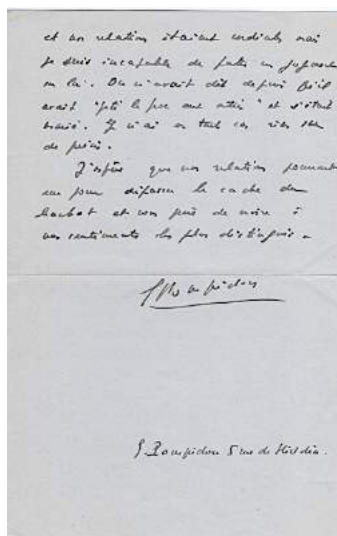 et nos relations étaient cordiales mais
je suis incapable de porter un jugement
sur lui. On m'avait dit depuis qu'il
avait "jeté le froc aux orties" et s'était
marié. Je n'ai en tout cas rien su
de précis.
J'espère que nos relations pourront
un jour dépasser le cadre du
et vous prie de croire à
mes sentiments les plus distingués.
G. Pompidou
G. Pompidou 5 rue de